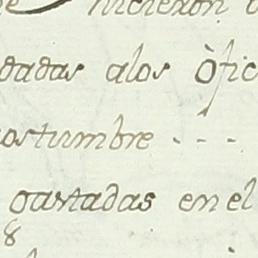 hicieron
dadas alos Ofic
ostumbre - - -
gastadas en el
8